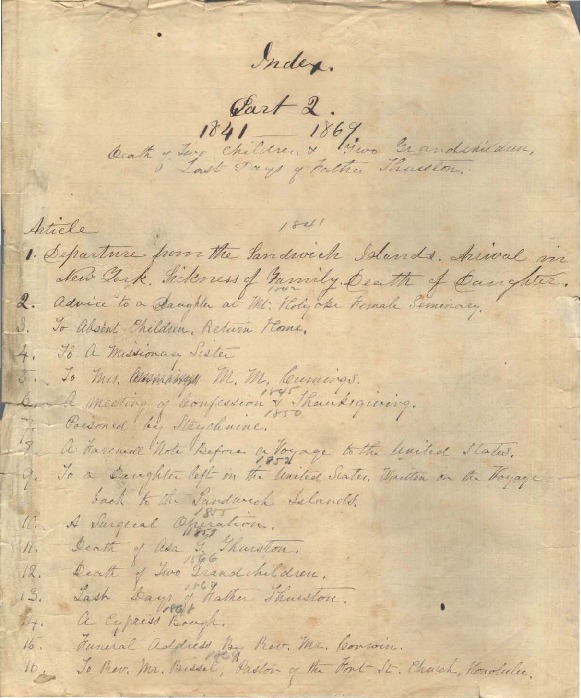 Index.
Part 2.
1841 — 1869
Death of Two Children & Two Grandchildren,
& Last Days of Father Thurston.
Article 1841
1. Departure from the Sandwich Islands. Arrival in
New York. Sickness of Family. Death of Daughter.
2. Advice to a Daughter at Mt. Holyoke Female Seminary.
3. To Absent Children. Return Home.
4. To A Missionary Sister
5. To Mrs. M. M. Cumings.
6. A Meeting of Confession & Thanksgiving.
1850
7. Poisoned by Strychnine.
8. A Farewell Note Before a Voyage to the United States.
9. To a Daughter left in the United States, Written on the Voyage
back to the Sandwich Islands.
1855
10. A Surgical Operation.
11. Death of Asa G. Thurston.
1866
12. Death of Two Grandchildren.
13. Last Days of Father Thurston.
1868
14. A Cypress Bough.
15. Funeral Address By Rev. Mr. Corwin.
16. To Rev. Mr. Bissel, Pastor of the Fort St. Church, Honolulu.